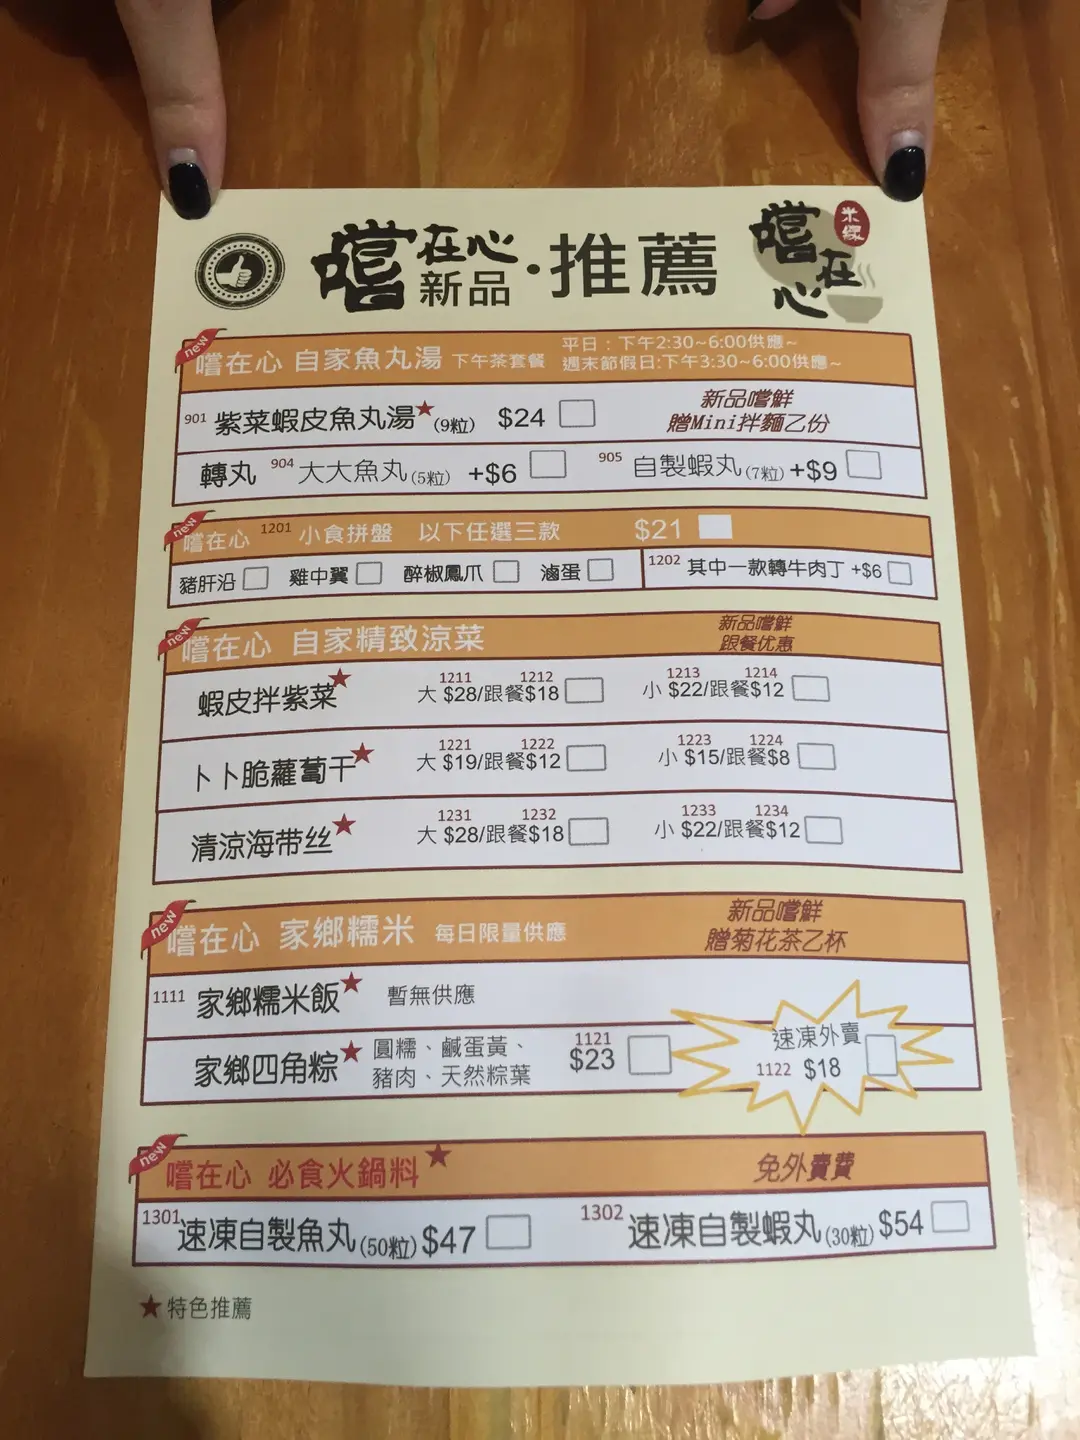 嚐在心
新品·推薦
米線
嚐在心
new
嚐在心 自家魚丸湯 下午茶套餐
平日：下午2:30~6:00供應~
週末節假日:下午3:30~6:00供應~
901 紫菜蝦皮魚丸湯★(9粒) $24
新品嚐鮮
贈Mini拌麵乙份
轉丸 904 大大魚丸(5粒) +$6 905 自製蝦丸(7粒) +$9
new
嚐在心 1201 小食拼盤 以下任選三款 $21
豬肝沿 雞中翼 醉椒鳳爪 滷蛋 1202 其中一款轉牛肉丁 +$6
new
嚐在心 自家精致涼菜
新品嚐鮮
跟餐优惠
1211 1212 1213 1214
蝦皮拌紫菜★ 大 $28/跟餐$18 小 $22/跟餐$12
1221 1222 1223 1224
卜卜脆蘿蔔干★ 大 $19/跟餐$12 小 $15/跟餐$8
1231 1232 1233 1234
清涼海带丝★ 大 $28/跟餐$18 小 $22/跟餐$12
new
嚐在心 家鄉糯米 每日限量供應
新品嚐鮮
贈菊花茶乙杯
1111 家鄉糯米飯★ 暫無供應
家鄉四角粽★
圓糯、鹹蛋黃、
豬肉、天然粽葉
1121
$23
速凍外賣
1122 $18
new
嚐在心 必食火鍋料★ 免外賣費
1301 速凍自製魚丸(50粒) $47 1302 速凍自製蝦丸(30粒) $54
★特色推薦